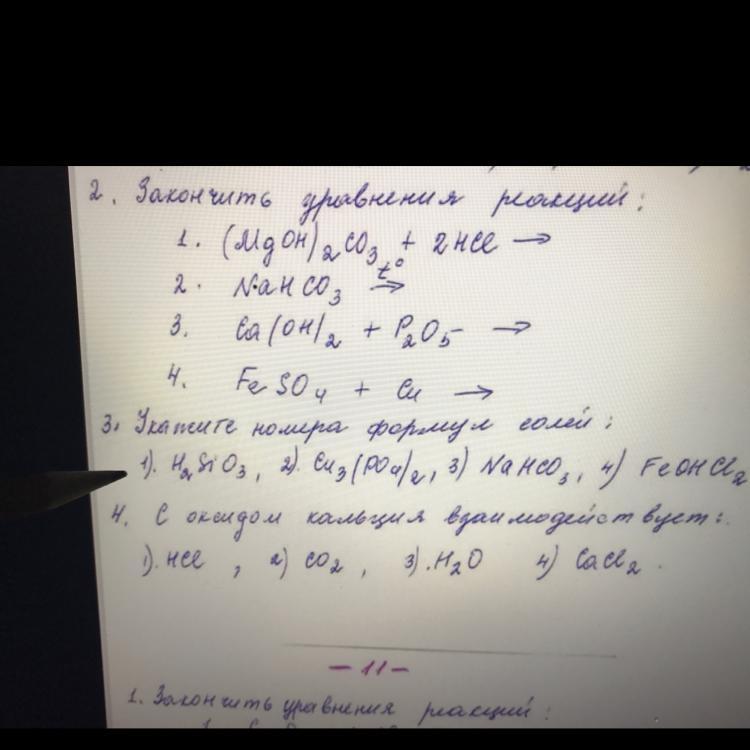 2. Закончить уравнения реакций:
1. (MgOH)₂CO₃ + 2HCl →
2. NaHCO₃ t° →
3. Ca(OH)₂ + P₂O₅ →
4. FeSO₄ + Cu →
3. Укажите номера формул солей:
1). H₂SiO₃, 2). Cu₃(PO₄)₂, 3) NaHCO₃, 4) FeOHCl₂
4. С оксидом кальция взаимодействует:
1). HCl, 2) CO₂, 3). H₂O 4) CaCl₂.
— 11 —
1. Закончить уравнения реакций: